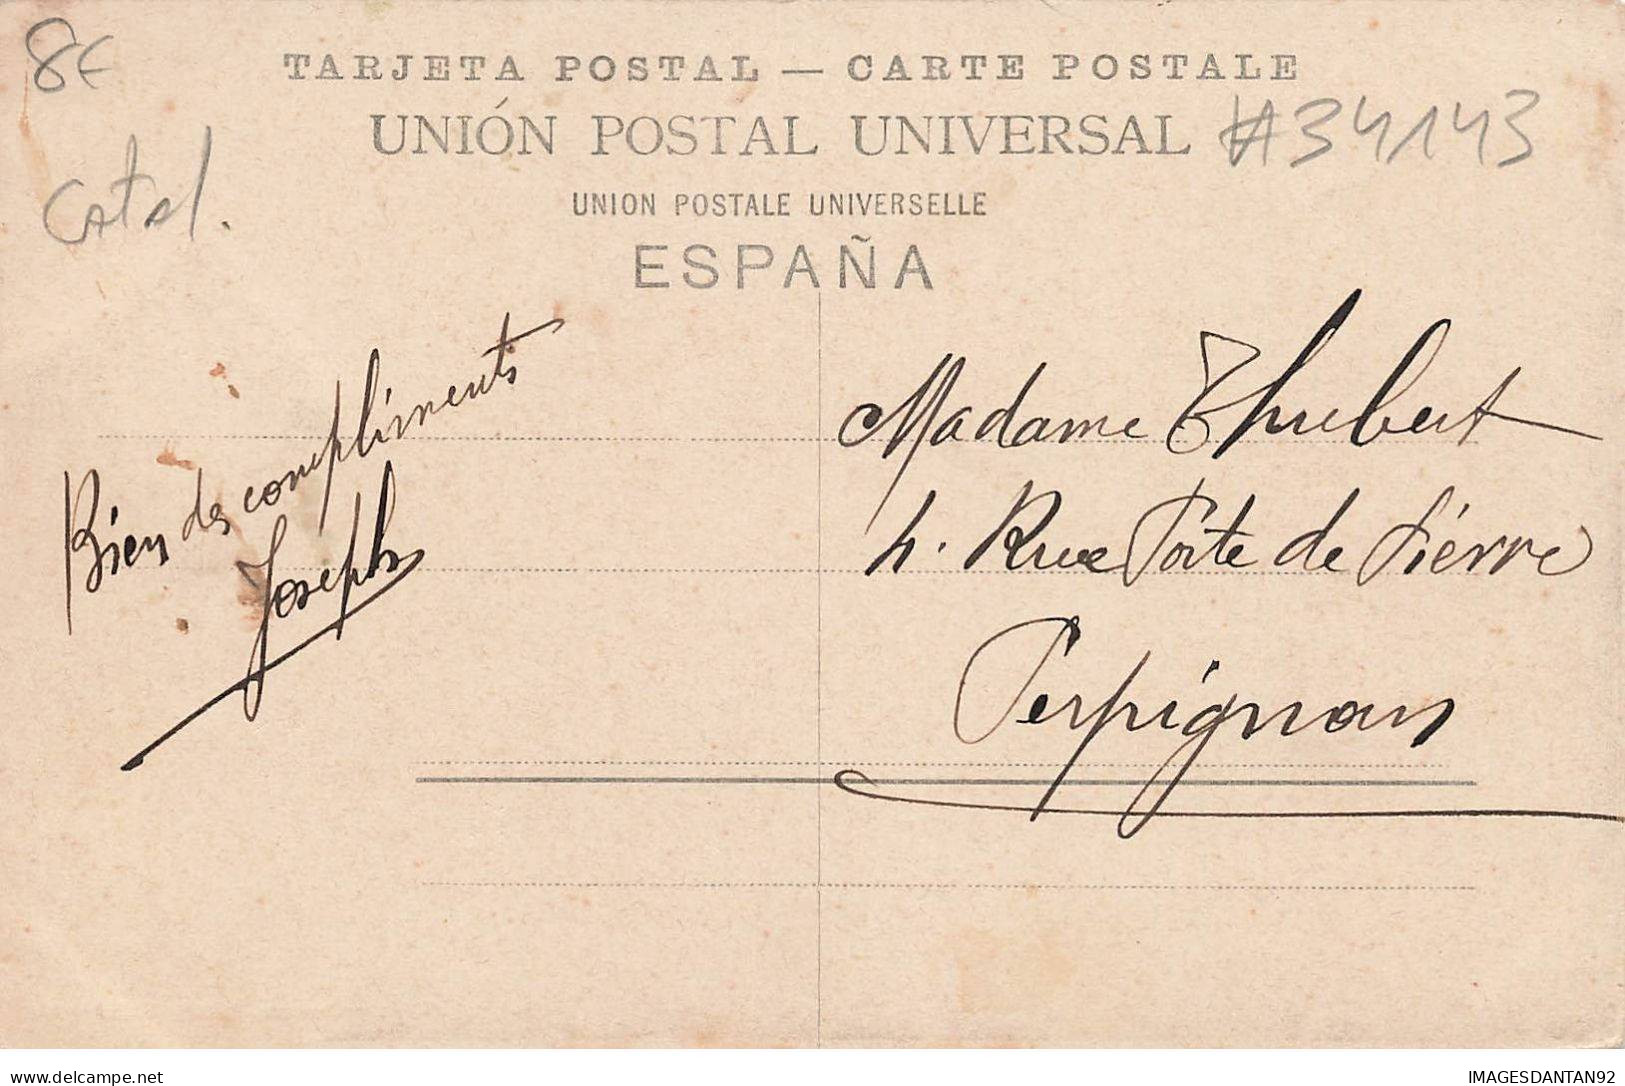 8€
TARJETA POSTAL — CARTE POSTALE
UNIÓN POSTAL UNIVERSAL
#34143
Catal.
UNION POSTALE UNIVERSELLE
ESPAÑA
Bien des compliments
Joseph
Madame Thubert
4. Rue Porte de Pierre
Perpignan
delcampe.net
IMAGESDANTAN92